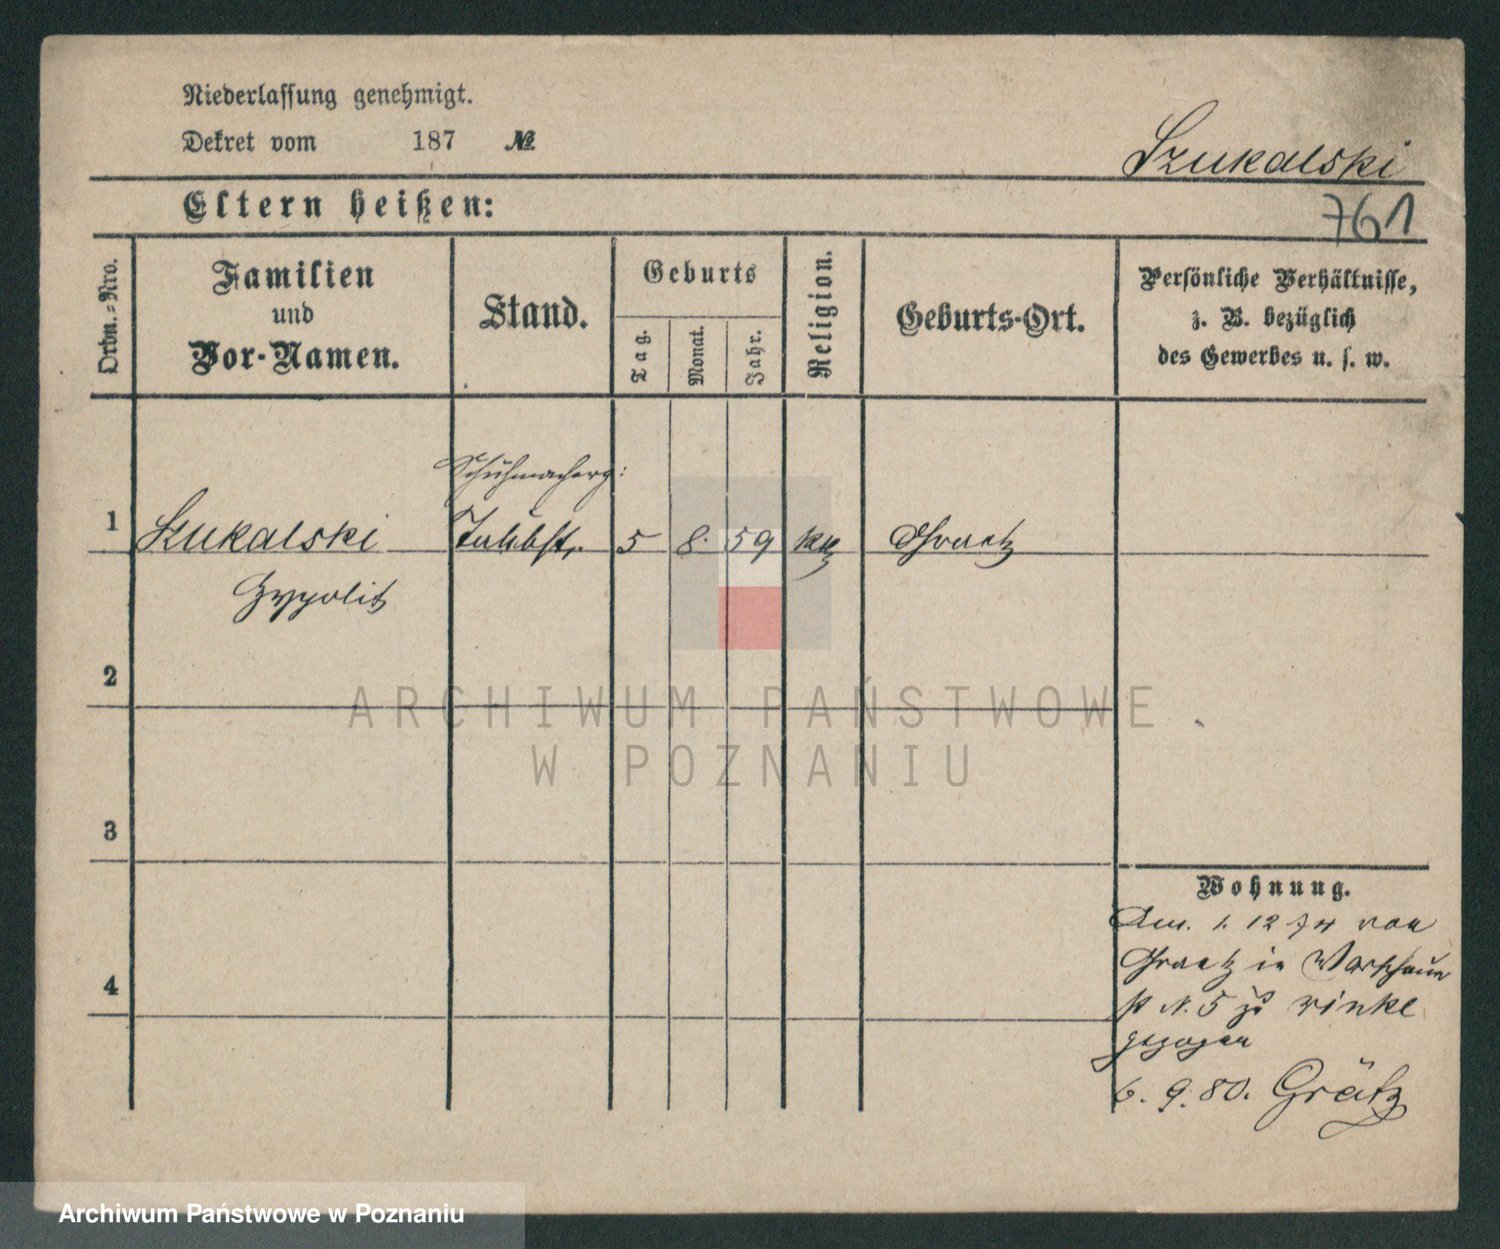 Niederlassung genehmigt.
Dekret vom 187 №
Szukalski
Eltern heißen:
761
Ordn.-Nro.
Familien
und
Vor-Namen.
Stand.
Geburts
Tag.
Monat.
Jahr.
Religion.
Geburts-Ort.
Persönliche Verhältnisse,
z. B. bezüglich
des Gewerbes u. s. w.
Schuhmacherg:
1 Szukalski 5 8. 59 kk Graetz
Hypolit
2
ARCHIWUM PAŃSTWOWE
W POZNANIU
3
Wohnung.
1. 12 74 von
Graetz in Warschauer
N. 5 zu rinke
4
gezogen
6. 9. 80. Grätz
Archiwum Państwowe w Poznaniu